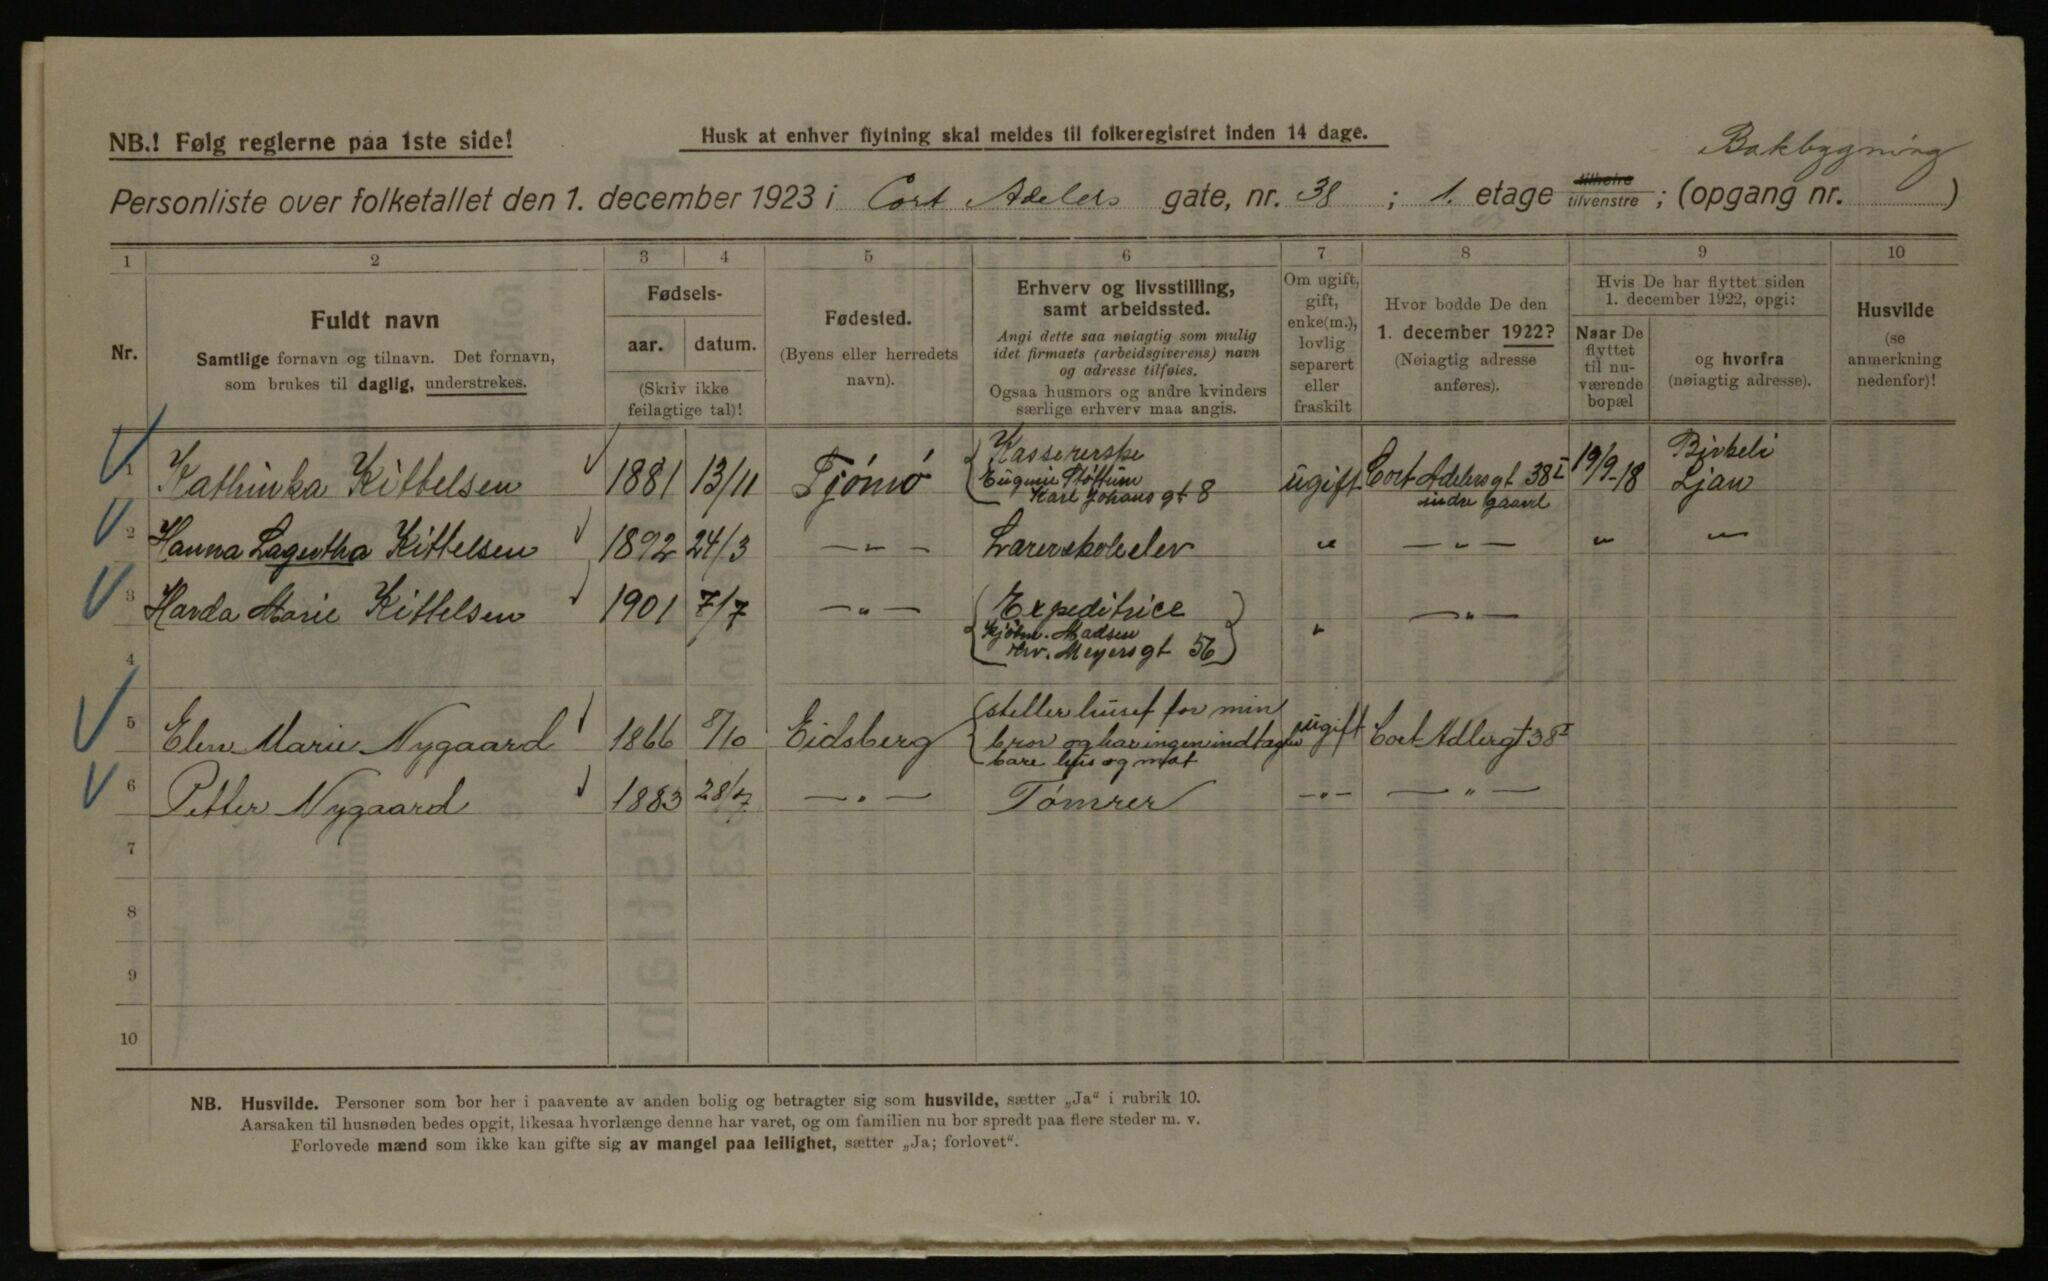 Bakbygning
NB.! Følg reglerne paa 1ste side!
Husk at enhver flytning skal meldes til folkeregistret inden 14 dage.
Personliste over folketallet den 1. december 1923 i Cort Adelers gate, nr. 38 ; 1. etage tilhøire tilvenstre ; (opgang nr. )
1 2 3 4 5 6 7 8 9 10
Nr.
Fuldt navn
Samtlige fornavn og tilnavn. Det fornavn,
som brukes til daglig, understrekes.
Fødsels-
aar. datum.
(Skriv ikke
feilagtige tal)!
Fødested.
(Byens eller herredets
navn).
Erhverv og livsstilling,
samt arbeidssted.
Angi dette saa nøiagtig som mulig
idet firmaets (arbeidsgiverens) navn
og adresse tilføies.
Ogsaa husmors og andre kvinders
særlige erhverv maa angis.
Om ugift,
gift,
enke(m.),
lovlig
separert
eller
fraskilt
Hvor bodde De den
1. december 1922?
(Nøiagtig adresse
anføres).
Hvis De har flyttet siden
1. december 1922, opgi:
Naar De
flyttet
til nu-
værende
bopæl
og hvorfra
(nøiagtig adresse).
Husvilde
(se
anmerkning
nedenfor)!
1 Kathinka Kittelsen 1881 13/11 Tjømø Kassererske
Eugenie
Karl Johans gt 8 ugift Cort Adelersgt 38 I
indre gaard 19/9-18 Birkeli
Ljan
2 Hanna Lagertha Kittelsen 1892 24/3 — " — Lærerskoleelev " — " — " "
3 Harda Marie Kittelsen 1901 7/7 — " — Expeditrice
Kjøbm. Madsen
Meyersgt 56 " — " —
4
5 Elen Marie Nygaard 1866 8/10 Eidsberg steller huset for min
bror og har ingen indtægter
bare hus og mat ugift Cort Adlergt 38 I
6 Petter Nygaard 1883 28/7 — " — Tømrer — " — — " —
7
8
9
10
NB. Husvilde. Personer som bor her i paavente av anden bolig og betragter sig som husvilde, sætter „Ja“ i rubrik 10.
Aarsaken til husnøden bedes opgit, likesaa hvorlænge denne har varet, og om familien nu bor spredt paa flere steder m. v.
Forlovede mænd som ikke kan gifte sig av mangel paa leilighet, sætter „Ja; forlovet“.